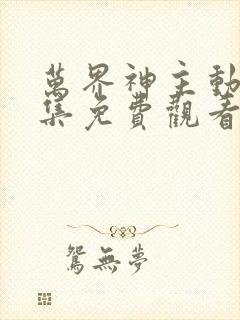 萬界神主動
集免費觀看
鴛無夢